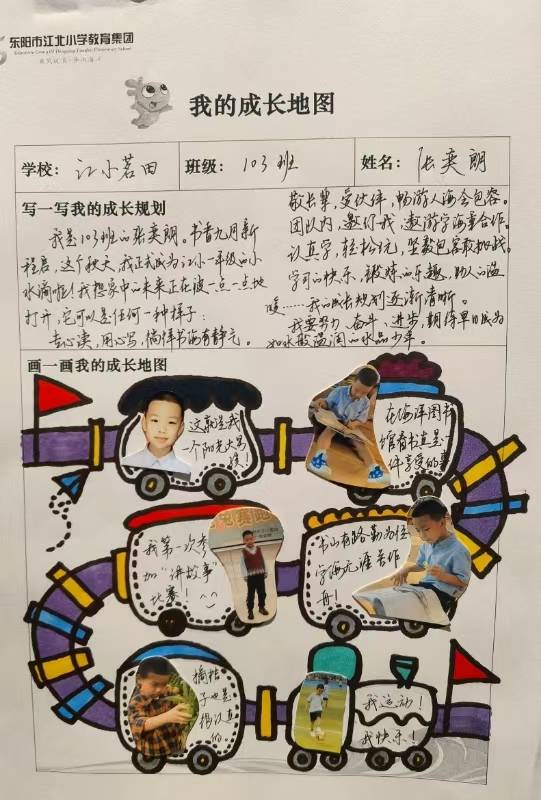 东阳市江北小学教育集团
我的成长地图
学校：江小茗田
班级：103班
姓名：张奕朗
写一写我的成长规划
我是103班的张奕朗。书香九月新
程启，这个秋天，我正式成为江小一年级的小
水滴啦！我想象中的未来正在被一点一点地
打开，它可以是任何一种样子：
专心读，用心写，徜徉书海有静气。
敬长辈，爱伙伴，畅游人海会包容。
团以内，邀你我，遨游学海章合作。
认真学，轻松玩，坚毅包容敢挑战。
学习的快乐，锻炼的乐趣，助人的温
暖……我的成长规划逐渐清晰。
我要努力、奋斗、进步，期待早日成为
如水般温润的水晶少年。
画一画我的成长地图
这就是我
一个阳光大男
孩！
在海洋图书
馆看书真是一
件享受的事
我第一次参
加“讲故事”
比赛！^^
书山有路勤为径
学海无涯苦作
舟！
摘桔
子也是
很认真
的。
我运动！
我快乐！